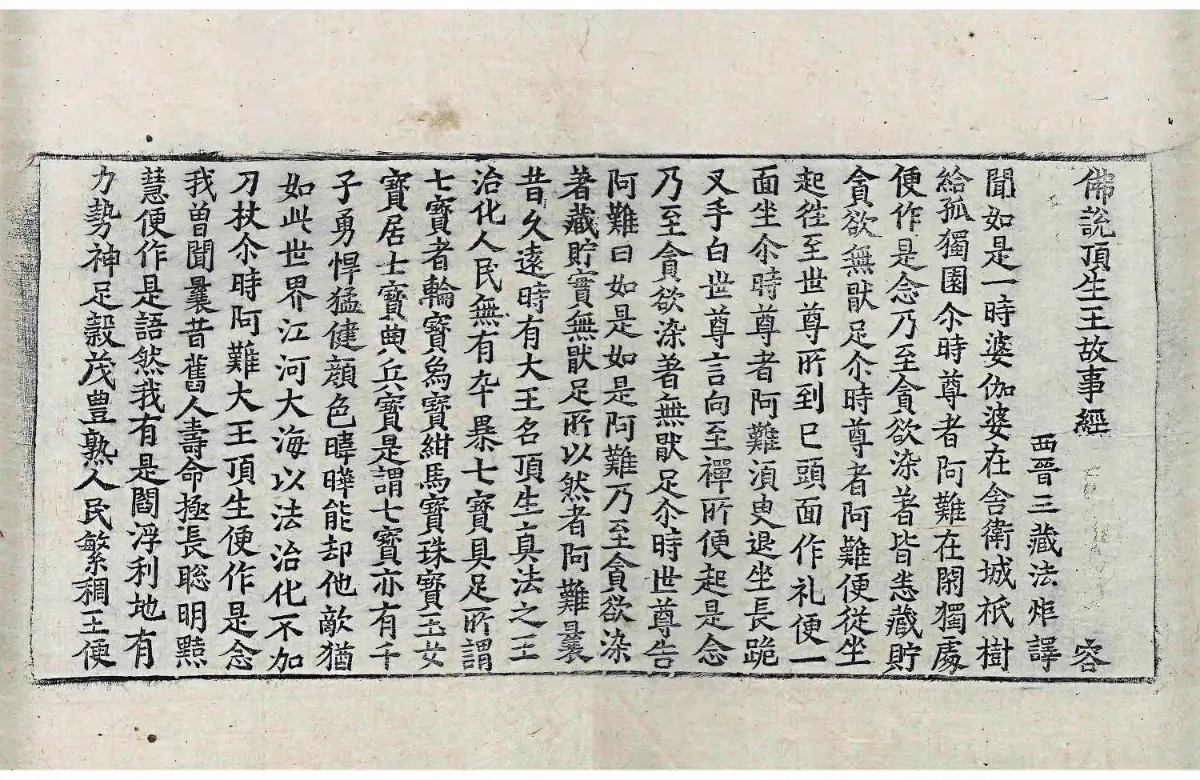 佛說頂生王故事經 容
西晉三藏法炬譯
聞如是一時婆伽婆在舍衛城祇樹
給孤獨園尒時尊者阿難在閑獨處
便作是念乃至貪欲染著皆悉藏貯
貪欲無猒足尒時尊者阿難便從坐
起往至世尊所到已頭面作礼便一
面坐尒時尊者阿難湏臾退坐長跪
叉手白世尊言向至禪所便起是念
乃至貪欲染著無猒足尒時世尊告
阿難曰如是如是阿難乃至貪欲染
著藏貯實無猒足所以然者阿難曩
昔久遠時有大王名頂生真法之王
治化人民無有卒暴七寶具足所謂
七寶者輪寶象寶紺馬寶珠寶玉女
寶居士寶典兵寶是謂七寶亦有千
子勇悍猛健顏色暐曄能却他敵猶
如此世界江河大海以法治化不加
刀杖尒時阿難大王頂生便作是念
我曾聞曩昔舊人壽命極長聡明黠
慧便作是語然我有是閻浮利地有
力勢神足穀茂豊熟人民繁稠王便